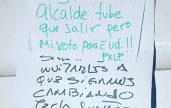 Alcalde tube
que salir pero
Mi voto Para Eud.!!
INVITARLOS A
QUE SIGAMOS
CAMBIANDO